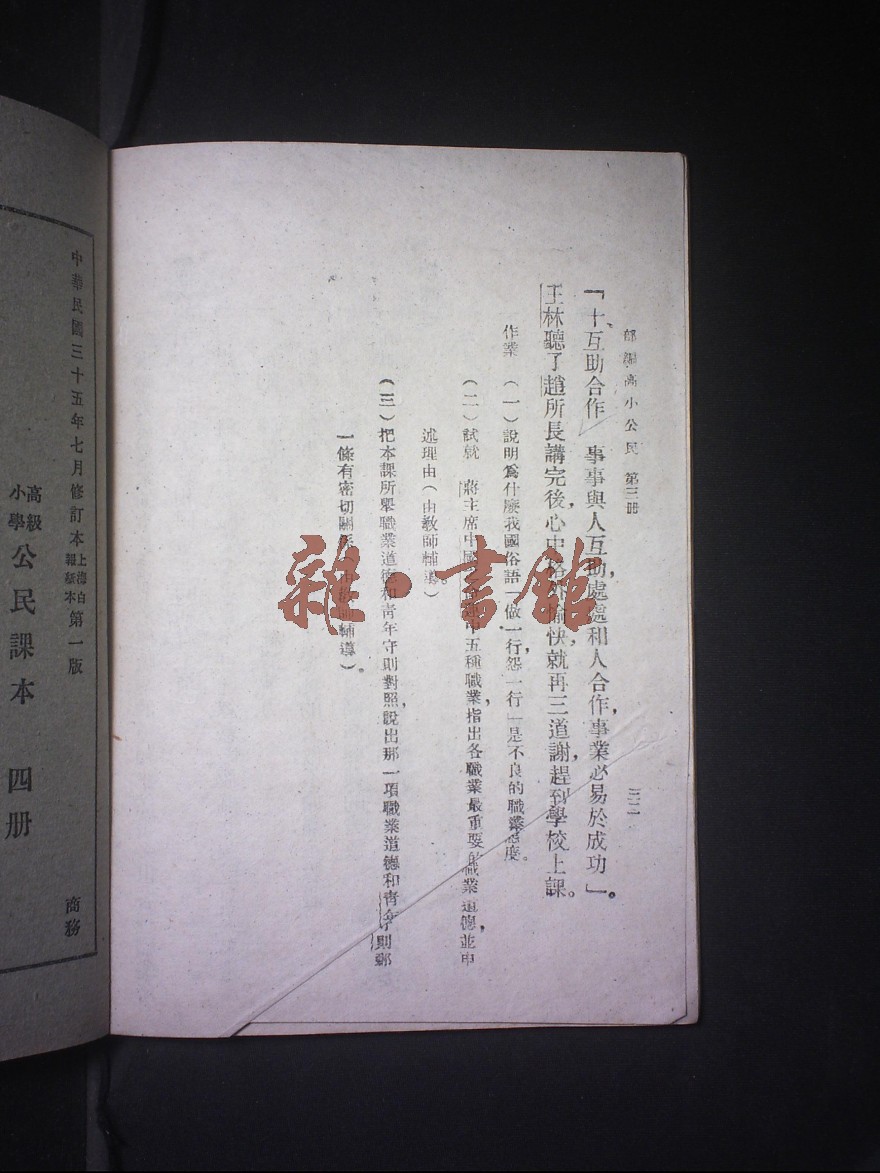 部編高小公民 第三冊
三二
「十、互助合作 事事與人互助,處處和人合作,事業必易於成功」。
王林聽了趙所長講完後,心中格外愉快,就再三道謝,趕到學校上課。
作業 (一)說明爲什麼我國俗語「做一行,怨一行」是不良的職業態度。
(二)試就 蔣主席中國之命運中五種職業,指出各職業最重要的職業道德,並申
述理由(由教師輔導)。
(三)把本課所舉職業道德和青年守則對照,說出那一項職業道德和青年守則那
一條有密切關係(由教師輔導)。
雜·書館
中華民國三十五年七月修訂本 上海白報紙本 第一版
高級小學 公民課本 四册
商務